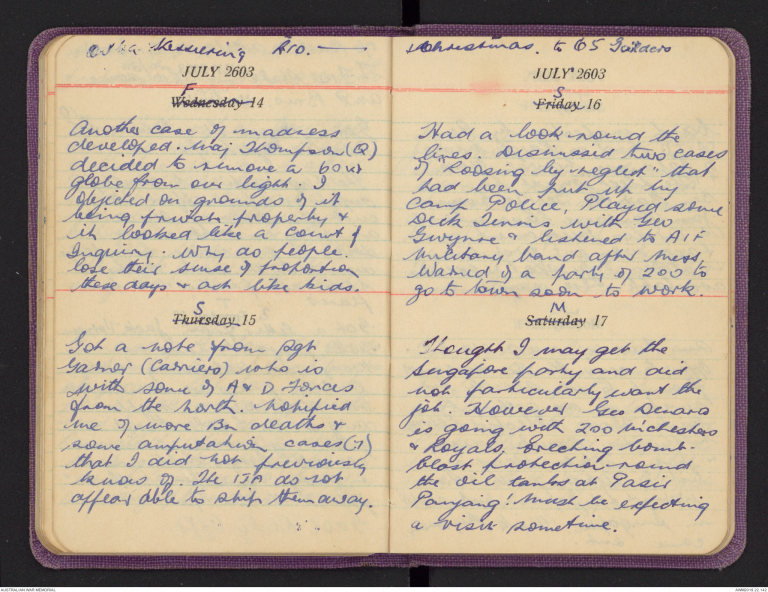 Kesselring Aro. —
JULY 2603
F
Wednesday 14
Another case of madness
developed. Maj Thompson (Q)
decided to remove a 60 wt
globe from our light. I
objected on grounds of it
being private property &
it looked like a Court of
Inquiry. Why do people
lose their sense of proportion
these days & act like kids.
S
Thursday 15
Got a note from Sgt
Garner (Carriers) who is
with some of A & D Forces
from the North. Notified
me of more Bn deaths &
some amputation cases (7)
that I did not previously
know of. The IJA do not
appear able to ship them away.
Christmas. to 65
JULY 2603
S
Friday 16
Had a look round the
lines. Dismissed two cases
of "Loosing by neglect" that
had been put up by
Camp Police. Played some
Deck Tennis with Geo
Gwynne & listened to AIF
Military band after mess.
Warned of a party of 200 to
go to town soon to work.
M
Saturday 17
Thought I may get the
Singapore party and did
not particularly want the
job. However Geo
is going with 200 Michesters
& Royals, erecting bomb-
blast protection round
the oil tanks at Pasir
Panjang! Must be expecting
a visit sometime.
AUSTRALIAN WAR MEMORIAL
AWM2018.22.142